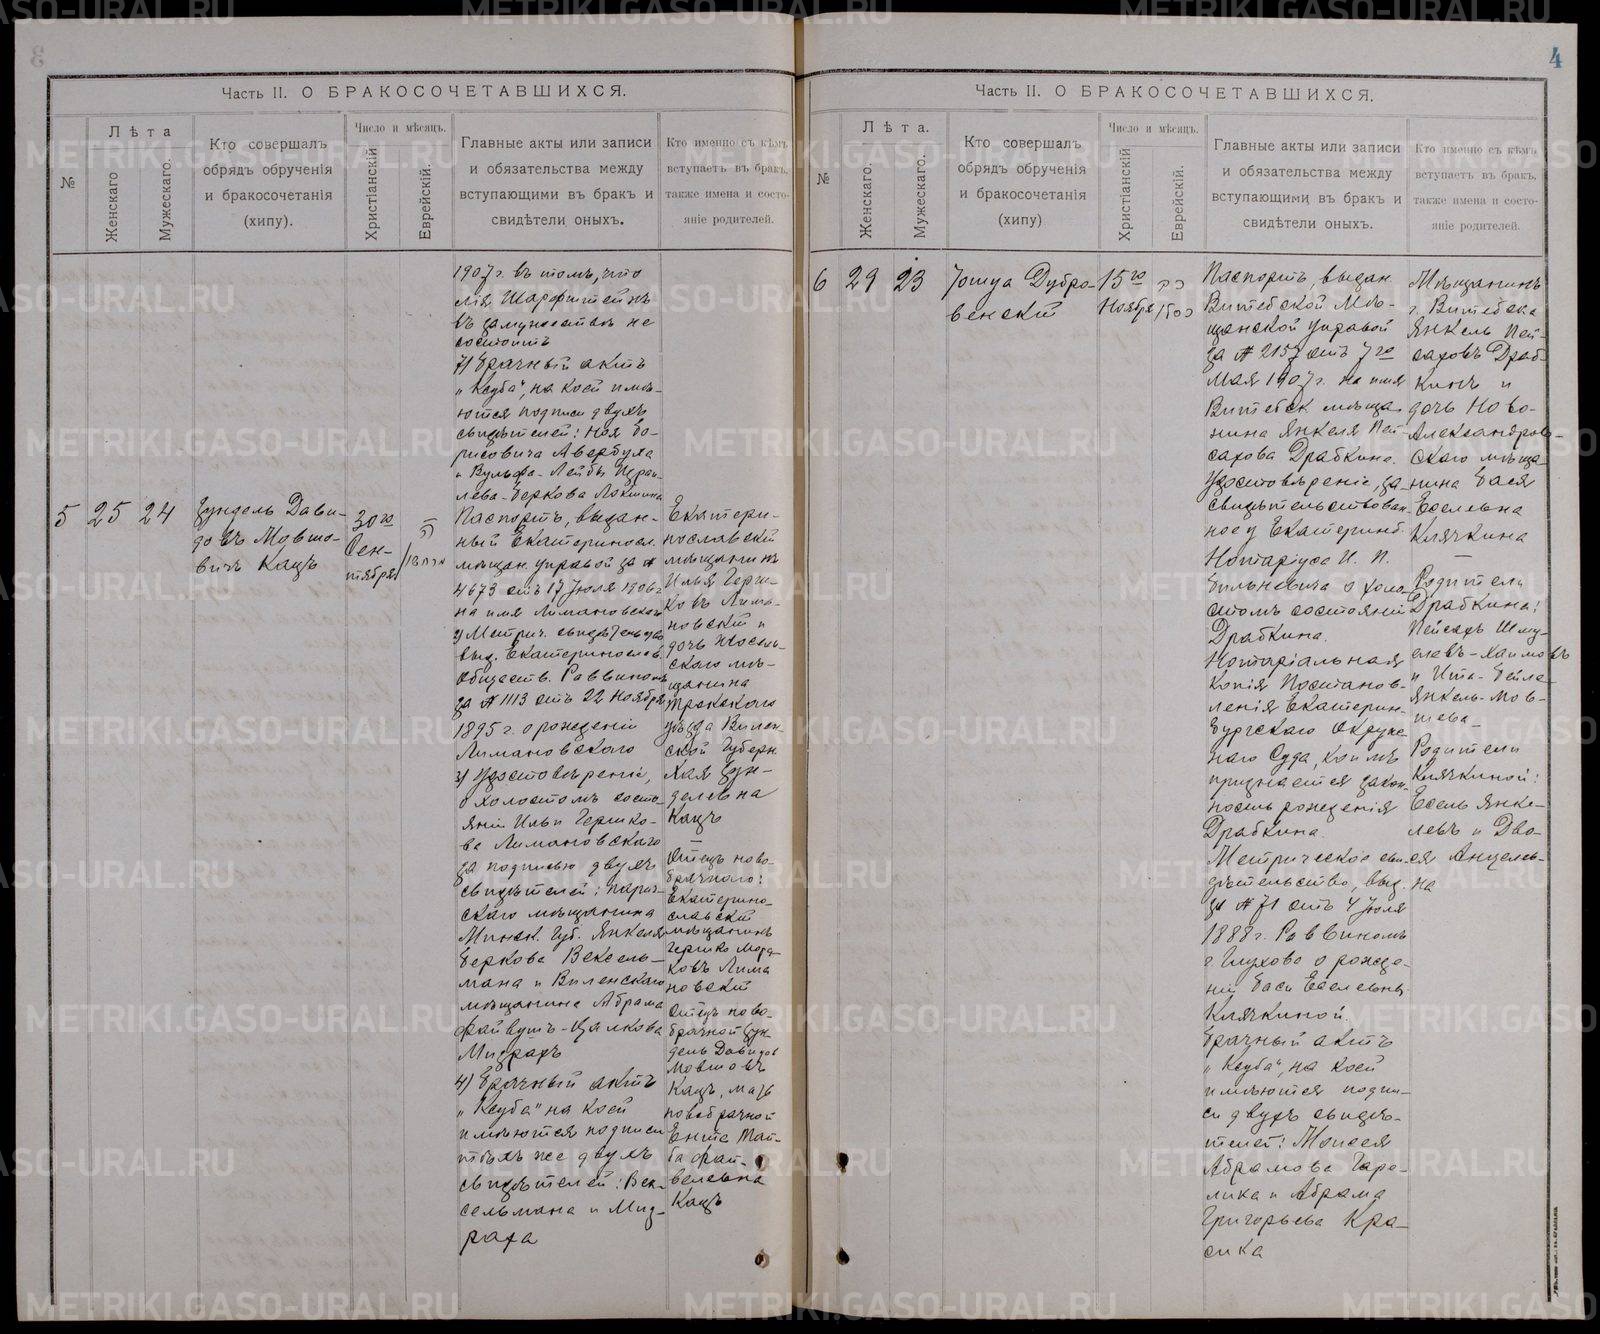 4
Часть II. О БРАКОСОЧЕТАВШИХСЯ.
№
Лѣта
Женскаго
Мужескаго.
Кто совершалъ
обрядъ обрученія
и бракосочетанія
(хипу).
Число и мѣсяцъ.
Христіанскій
Еврейскій.
Главные акты или записи
и обязательства между
вступающими въ бракъ и
свидѣтели оныхъ.
Кто именно съ кѣмъ
вступаетъ въ бракъ,
также имена и состо-
яніе родителей.
1907 г. въ томъ, что
Лія Шарфштейнъ
въ замужествѣ не
состоитъ
7) Брачный актъ
„Ксуба", на коей имѣ-
ются подписи двухъ
свидѣтелей: Ноя Бо-
рисовича Авербуха
и Вульфа-Лейбы Изра-
лева-Беркова
5
25
24
Зундель Дави-
довъ Мовшо-
вичъ Кацъ
30го
Сен-
тября
Паспортъ, выдан-
ный Екатериносл.
мѣщан. управой за №
4673 отъ 17 Іюля 1906 г.
на имя Лимановскаго
2) Метрич. свидѣтельство
выд. Екатеринослав.
Обществ. Раввиномъ
за № 1113 отъ 22 Ноября
1895 г. о рожденіи
Лимановскаго
3) Удостовѣреніе,
о холостомъ состо-
яніи Ильи Гершко-
ва Лимановскаго
за подписью двухъ
свидѣтелей: Парич-
скаго мѣщанина
Минск. Губ. Янкеля
Беркова Вексель-
мана и Виленскаго
мѣщанина Абрама
Файвушъ-Цалкова
Мизрахъ
4) Брачный актъ
„Ксуба" на коей
имѣются подписи
тѣхъ же двухъ
свидѣтелей: Век-
сельмана и Миз-
раха
Екатери-
нославскій
мѣщанинъ
Илья Герш-
ковъ Лима-
новскій и
дочь
скаго мѣ-
щанина
Трокскаго
уѣзда Вилен-
ской Губерн.
Хая Зун-
делевна
Кацъ
—
Отецъ ново-
брачнаго:
Екатерино-
славскій
мѣщанинъ
Гершко Морд-
ковъ Лима
новскій
Отецъ ново-
брачной Зун-
дель Давидов
Мовшовъ
Кацъ, мать
новобрачной
Ента Тай-
ба Фай-
велевна
Кацъ
Часть II. О БРАКОСОЧЕТАВШИХСЯ.
№
Лѣта.
Женскаго.
Мужескаго.
Кто совершалъ
обрядъ обрученія
и бракосочетанія
(хипу)
Число и мѣсяцъ.
Христіанскій
Еврейскій.
Главные акты или записи
и обязательства между
вступающими въ бракъ и
свидѣтели оныхъ.
Кто именно съ кѣмъ
вступаетъ въ бракъ,
также имена и состо-
яніе родителей.
6
29
23
Іошуа Дубро-
венскій
15го
Ноября
כה
כסלו
Паспортъ, выдан.
Витебской Мѣ-
щанской управой
за № 2157 отъ 7го
Мая 1907 г. на имя
Витебск. мѣща-
нина Янкеля Пей-
сахова Драбкина.
Удостовѣреніе, за-
свидѣтельствован-
ное у Екатеринб.
Нотаріуса И. П.
Вильневича о холо-
стомъ состояніи
Драбкина.
Нотаріальная
копія Постанов-
ленія Екатерин-
бургскаго Окруж-
наго Суда, коимъ
признается закон-
ность рожденія
Драбкина.
Метрическое сви-
дѣтельство, выд.
за № 71 отъ 4 Іюля
1888 г. Раввиномъ
г. Глухова о рожде-
ніи Баси Еселевны
Клячкиной.
Брачный актъ
„Ксуба", на коей
имѣются подпи-
си двухъ свидѣ-
телей: Моисея
Абрамова Гаре-
лика и Абрама
Григорьева Кра-
сика
Мѣщанинъ
г. Витебска
Янкель Пей-
саховъ Драб-
кинъ и
дочь Ново-
Александров-
скаго мѣща-
нина Бася
Еселевна
Клячкина
—
Родители
Драбкина:
Пейсахъ Шму-
елевъ-Хаимовъ
и Ита-Бейла
Янкель-Мов-
шева—
Родители
Клячкиной:
Есель Янке-
левъ и Дво-
ся Анцелев-
на